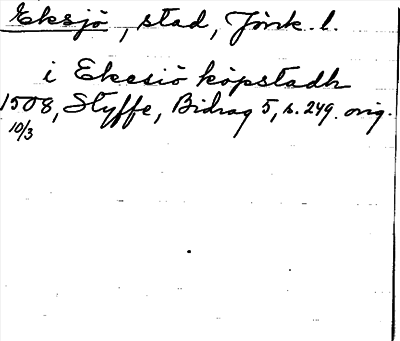 Eksjö, stad, Jönk. l.
i Ekesiö köpstadh
1508, Styffe, Bidrag 5, s. 249. orig.
10/3